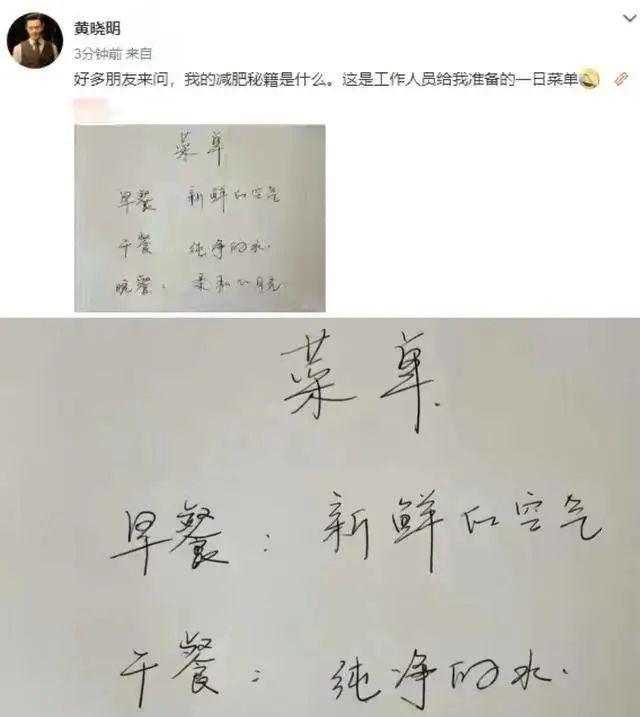 黄晓明
3分钟前 来自
好多朋友来问，我的减肥秘籍是什么。这是工作人员给我准备的一日菜单
菜单
早餐 新鲜的空气
午餐 纯净的水.
晚餐: 柔和的月光
菜单.
早餐: 新鲜的空气
午餐: 纯净的水.